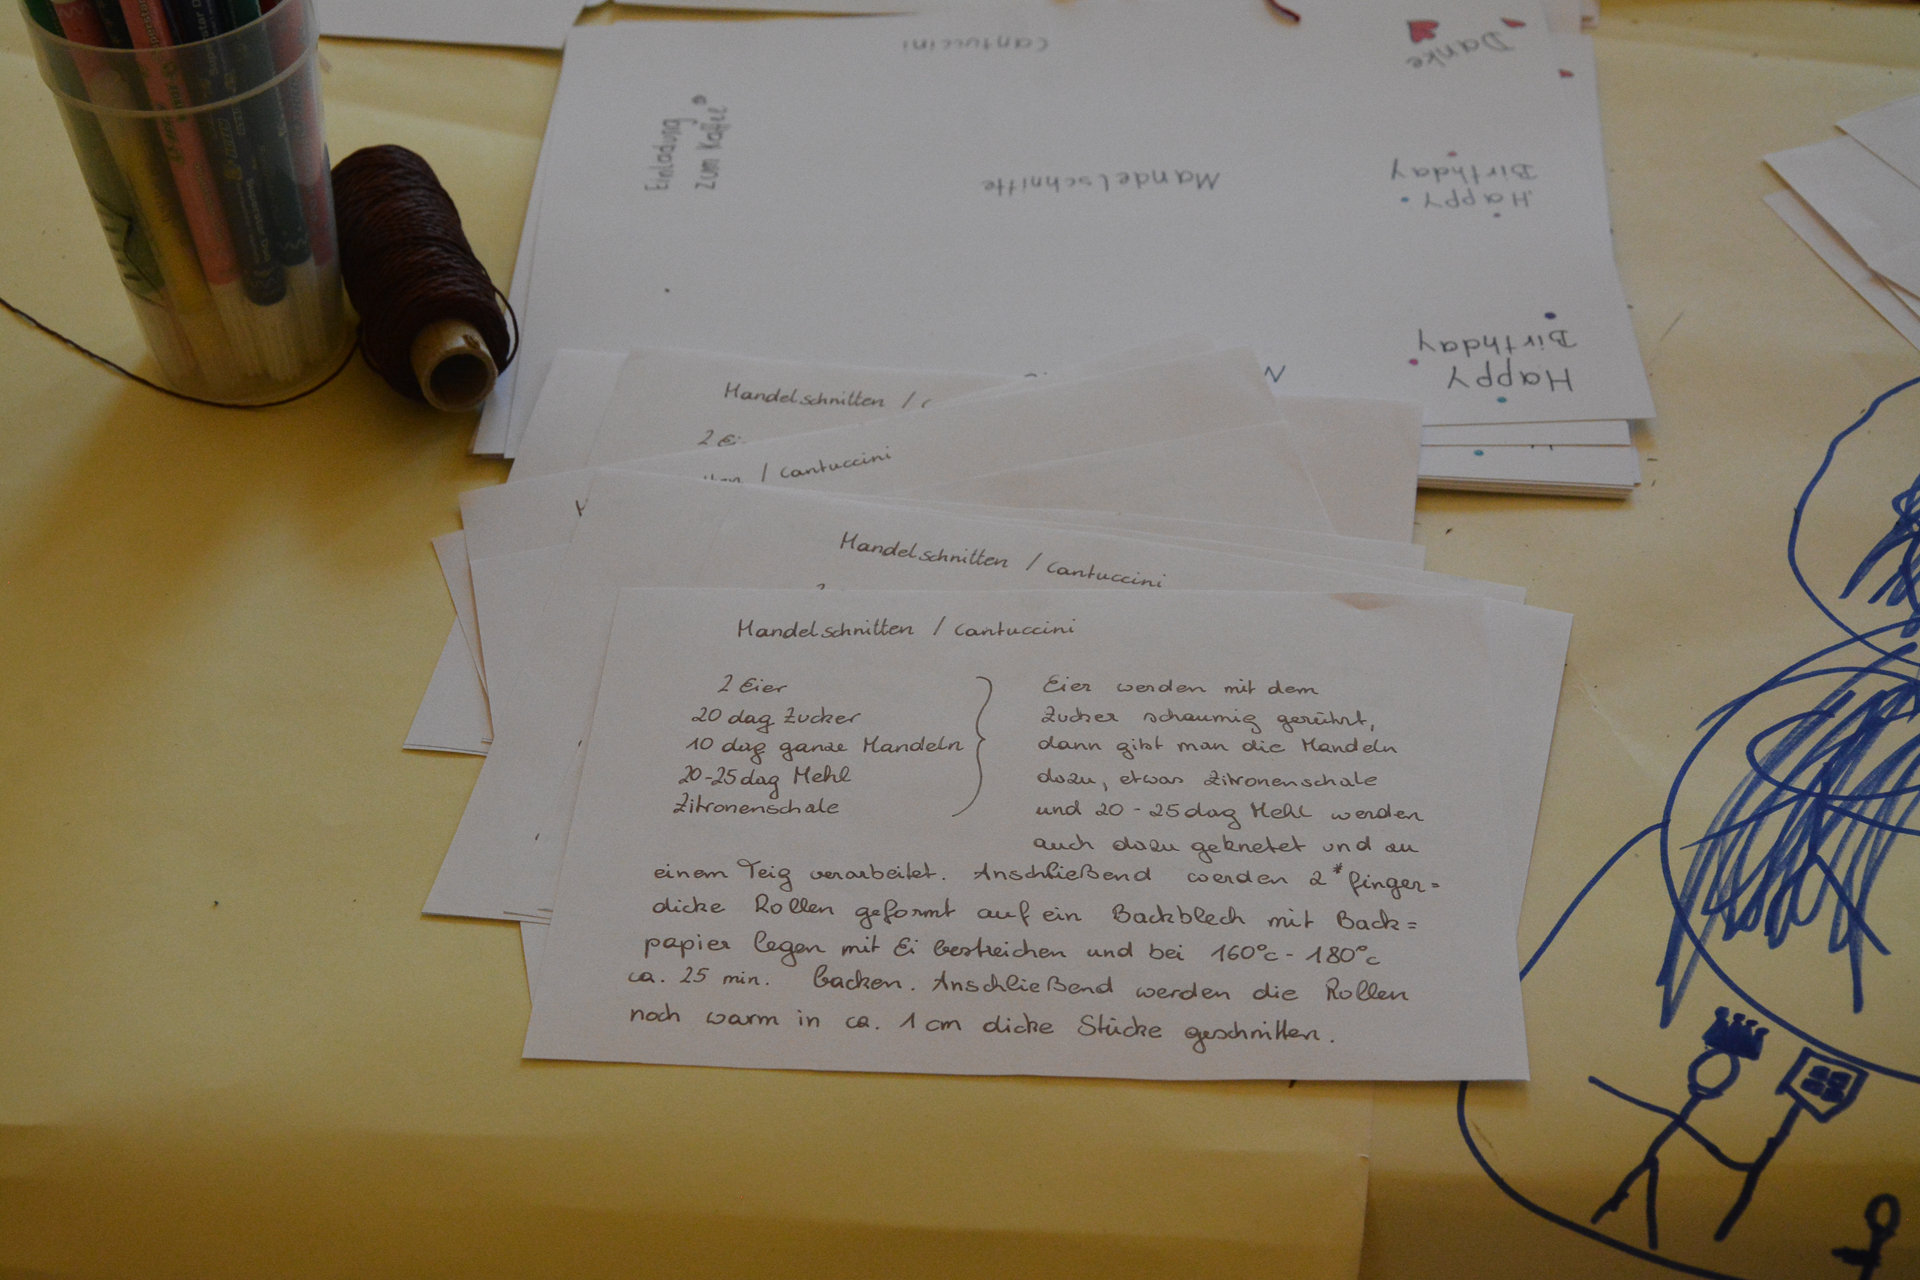 Cantuccini
Danke
Einladung
zum Kaffee
Mandelschnitte
Happy
Birthday
Happy
Birthday
Mandelschnitten /
2 Ei
/ Cantuccini
Mandelschnitten / Cantuccini
Mandelschnitten / Cantuccini
2 Eier
20 dag Zucker
10 dag ganze Mandeln
20-25 dag Mehl
Zitronenschale
Eier werden mit dem
Zucker schaumig gerührt,
dann gibt man die Mandeln
dazu, etwas Zitronenschale
und 20 - 25 dag Mehl werden
auch dazu geknetet und zu
einem Teig verarbeitet. Anschließend werden 2* finger=
dicke Rollen geformt auf ein Backblech mit Back=
papier legen mit Ei bestreichen und bei 160°C - 180°C
ca. 25 min. backen. Anschließend werden die Rollen
noch warm in ca. 1 cm dicke Stücke geschnitten.